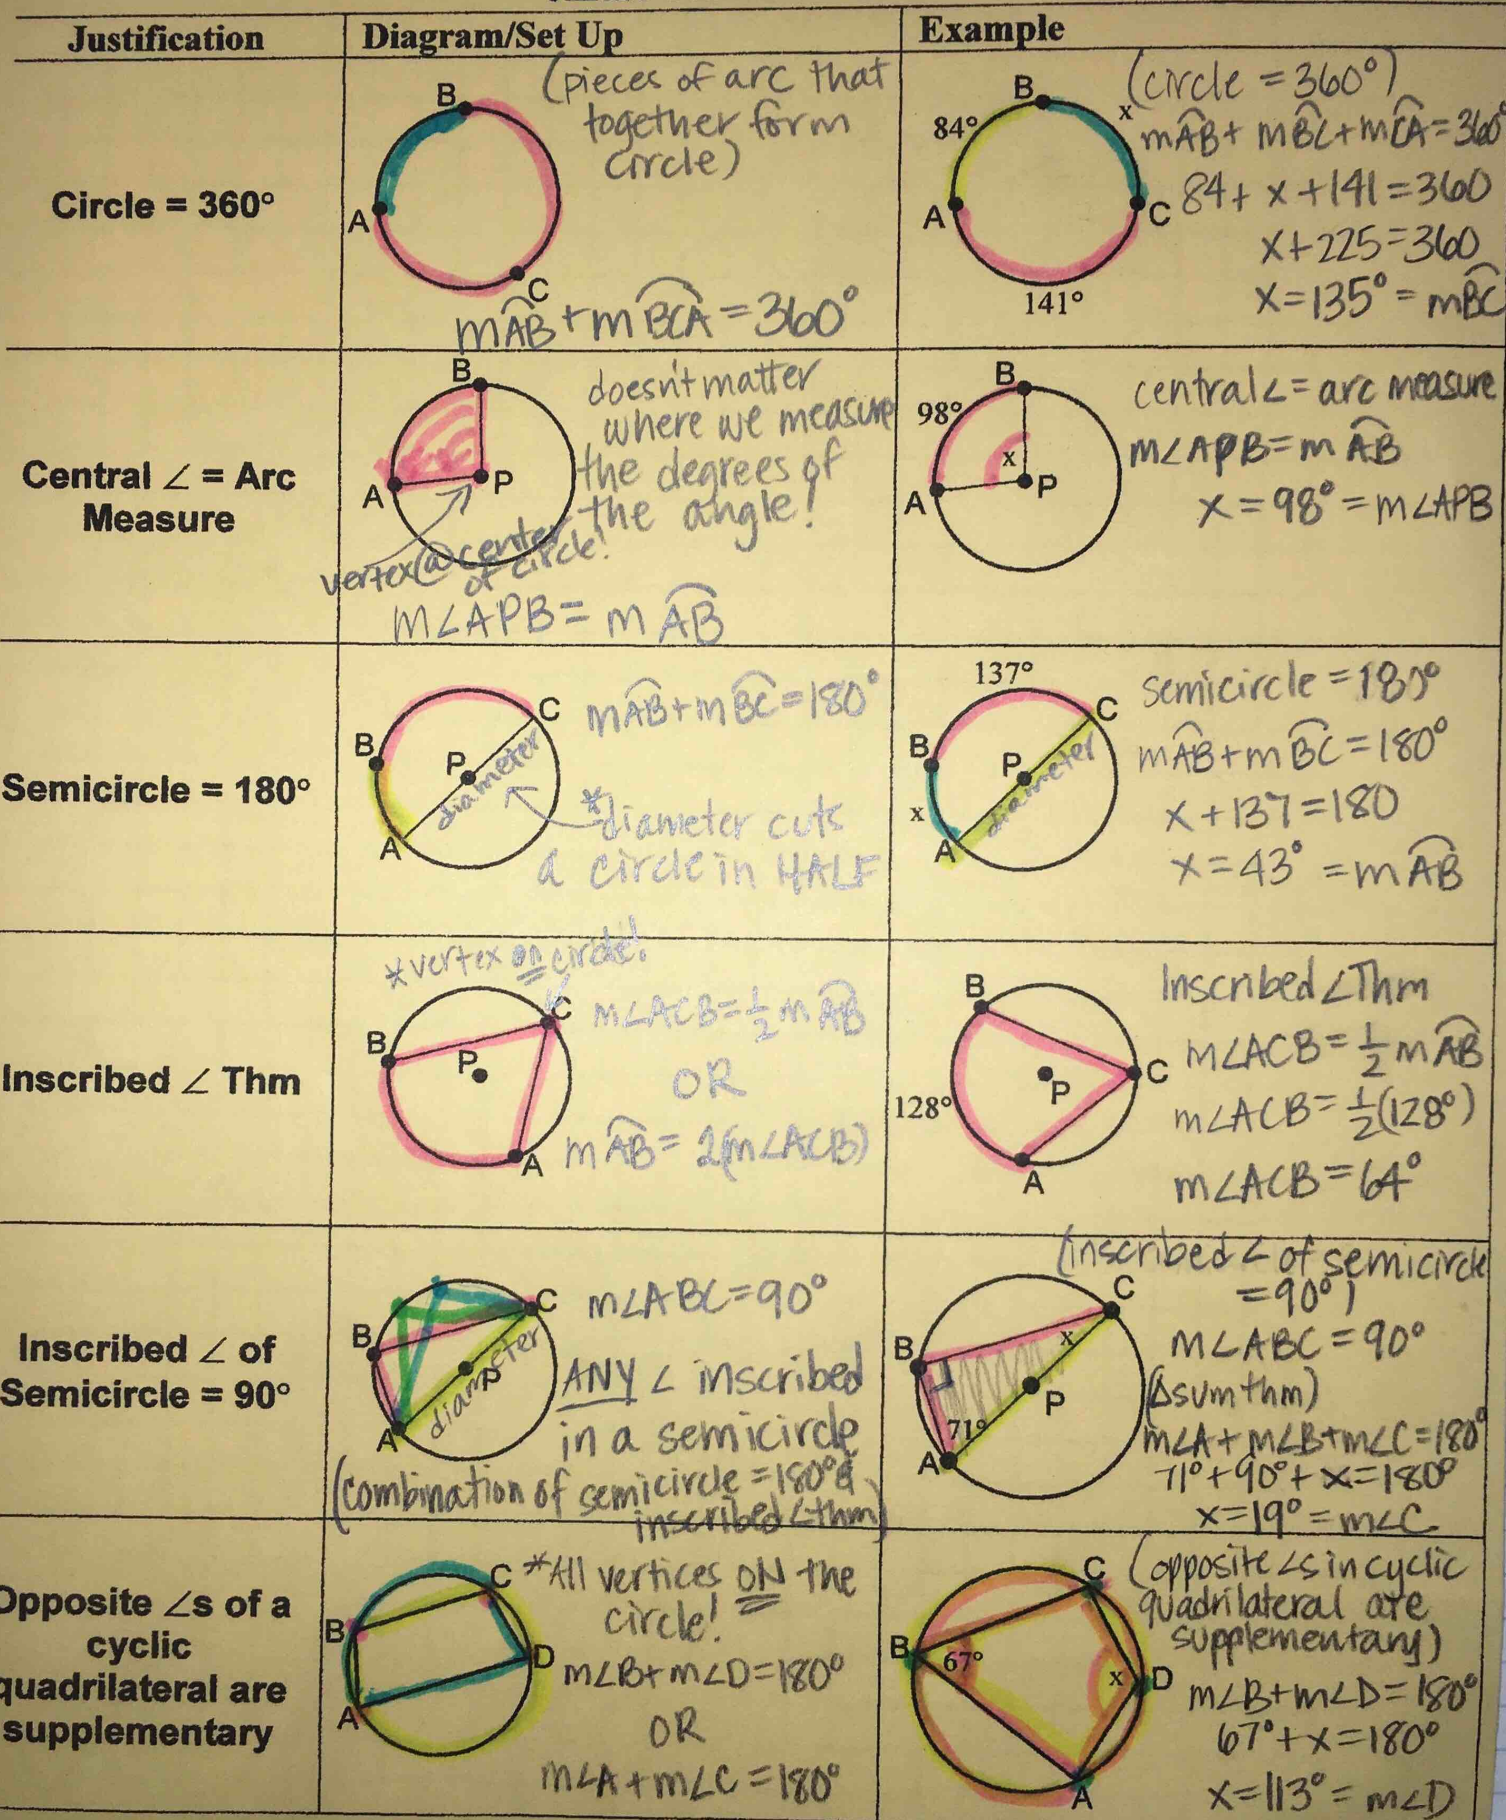 Justification
Diagram/Set Up
Example
Circle = 360°
B
A
C
(pieces of arc that
together form
circle)
mAB + mBCA = 360°
B
84°
x
A
C
141°
(circle = 360°)
mAB + mBC + mCA = 360°
84 + x + 141 = 360
x + 225 = 360
x = 135° = mBC
Central ∠ = Arc
Measure
B
A
P
doesn't matter
where we measure
the degrees of
the angle!
vertex @ center
of circle!
m∠APB = mAB
B
98°
x
A
P
central ∠ = arc measure
m∠APB = mAB
x = 98° = m∠APB
Semicircle = 180°
C
B
P
A
diameter
mAB + mBC = 180°
*diameter cuts
a circle in HALF
137°
C
B
P
x
A
diameter
semicircle = 180°
mAB + mBC = 180°
x + 137 = 180
x = 43° = mAB
Inscribed ∠ Thm
*vertex on circle!
C
B
P
A
m∠ACB = 1/2 mAB
OR
mAB = 2(m∠ACB)
B
C
P
128°
A
Inscribed ∠ Thm
m∠ACB = 1/2 mAB
m∠ACB = 1/2 (128°)
m∠ACB = 64°
Inscribed ∠ of
Semicircle = 90°
C
B
P
A
diameter
m∠ABC = 90°
ANY ∠ inscribed
in a semicircle
(combination of semicircle = 180° &
inscribed ∠ thm)
C
B
x
P
71°
A
(inscribed ∠ of semicircle
= 90°)
m∠ABC = 90°
(Δ sum thm)
m∠A + m∠B + m∠C = 180°
71° + 90° + x = 180°
x = 19° = m∠C
Opposite ∠s of a
cyclic
quadrilateral are
supplementary
C
B
D
A
*All vertices ON the
circle!
m∠B + m∠D = 180°
OR
m∠A + m∠C = 180°
C
B
67°
x
D
A
(opposite ∠s in cyclic
quadrilateral are
supplementary)
m∠B + m∠D = 180°
67° + x = 180°
x = 113° = m∠D